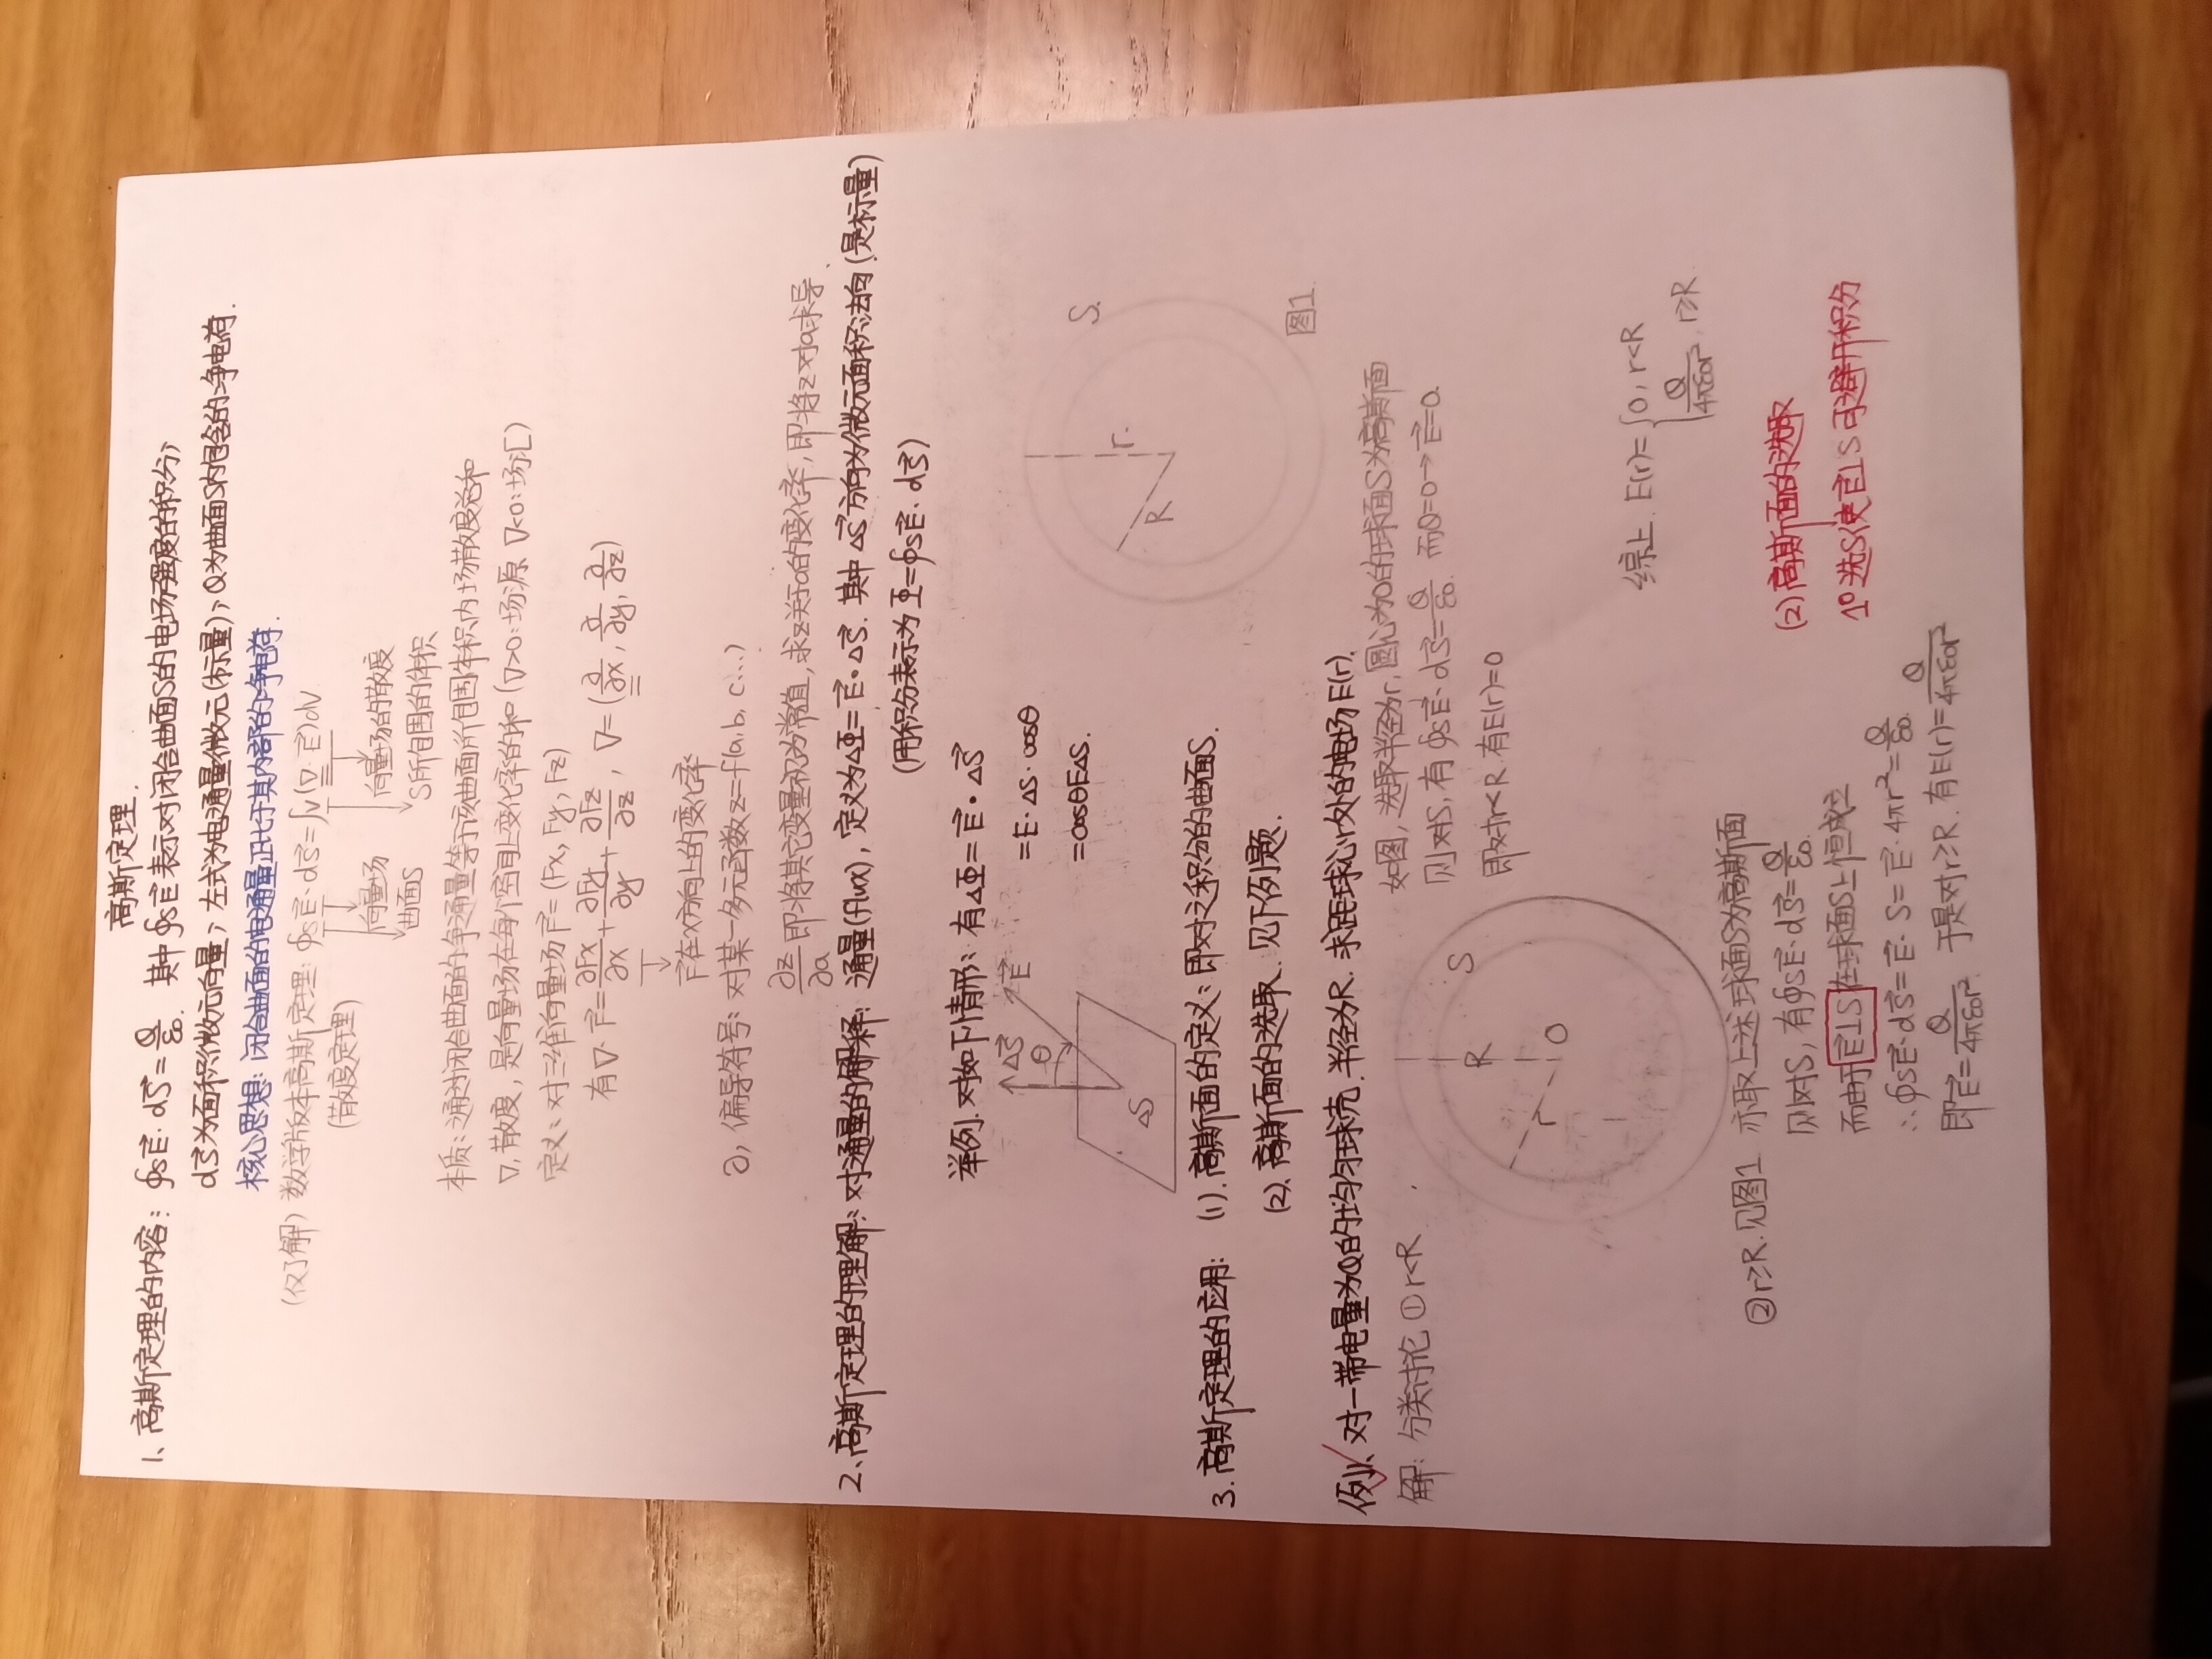 高斯定理.
1、高斯定理的内容: ∮sE⃗·dS⃗=Q/ε₀. 其中∮sE⃗表示对闭合曲面S的电场强度的积分,
dS⃗为面积微元向量, 左式为电通量微元(标量), Q为曲面S内包含的净电荷.
核心思想: 闭合曲面的电通量正比于其内部的净电荷.
(仅了解) 数学版本高斯定理: ∮sE⃗·dS⃗=∫v(∇·E⃗)dV
(散度定理)
向量场
曲面S
向量场的散度
S所包围的体积
本质: 通过闭合曲面的净通量等于该曲面所包围体积内场散度总和
∇, 散度, 是向量场在每个空间上变化率的和 (∇>0:场源 ∇<0:场汇)
定义: 对三维向量场F⃗=(Fx, Fy, Fz)
有∇·F⃗=∂Fx/∂x+∂Fy/∂y+∂Fz/∂z, ∇=(∂/∂x, ∂/∂y, ∂/∂z)
F⃗在x方向上的变化率
∂, 偏导符号: 对某一多元函数z=f(a,b,c...)
∂z/∂a 即将其它变量初为常值, 求z关于a的变化率, 即将z对a求导
2、高斯定理的理解: 对通量的解释: 通量(flux), 定义为ΔΦ=E⃗·ΔS⃗. 其中ΔS⃗方向为微元面积法向(是标量)
(用积分表示为Φ=∮sE⃗·dS⃗)
举例. 对如下情形: 有ΔΦ=E⃗·ΔS⃗
=E·ΔS·cosθ
=cosθEΔS.
ΔS⃗
θ
E⃗
ΔS
3.高斯定理的应用: (1).高斯面的定义: 即对之积分的曲面S.
(2).高斯面的选取. 见下例题.
例、对一带电量为Q的均匀球壳. 半径为R. 求距球心r处的电场E(r).
解: 分类讨论 ①r<R
如图, 选取半径为r, 圆心为O的球面S为高斯面
则对S, 有∮sE⃗·dS⃗=Q/ε₀. 而Q=0→E⃗=0.
即对r<R. 有E(r)=0
S
R
r
O
R
r.
S.
图1
②r≥R.见图1 亦取上述球面S为高斯面
则对S, 有∮sE⃗·dS⃗=Q/ε₀.
而由于E⃗⊥S在球面S上恒成立
∴∮sE⃗·dS⃗=E⃗·S=E⃗·4πr²=Q/ε₀.
即E⃗=Q/4πε₀r² 于是对r≥R. 有E(r)=Q/4πε₀r²
综上. E(r)={0, r<R
Q/4πε₀r², r≥R.
(2)高斯面的选取
1°选S使E⃗⊥S可避开积分